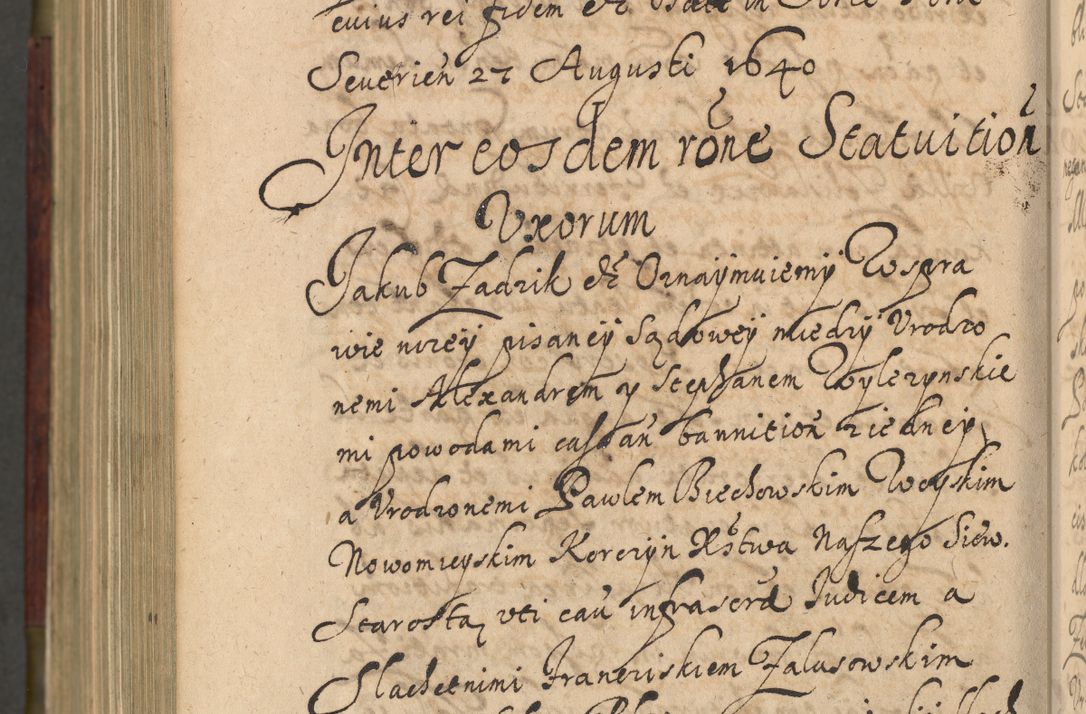 cuius rei fidem etc̃ Dat̃ in
Severień 27 Augusti 1640
Inter eosdem rõne Statuitioñ
Uxorum
Jakub Zadzik etc̃ Oznaÿmuiemÿ W spra
wie nizeÿ pisaneÿ Sądoweÿ miedzÿ Urodzo
nemi Alexandrem y Stephanem Wylezynskie
mi powodami cassań bannitioñ z iedneÿ
a Urodzonemi Pawlem Biechowskim Woyskim
Nowomieyskim Korczÿn Xs̃twa Naszego Siew.
Starostą uti cau infrascrd Iudicem a
Slachetnimi Franciszkiem Zalusowskim